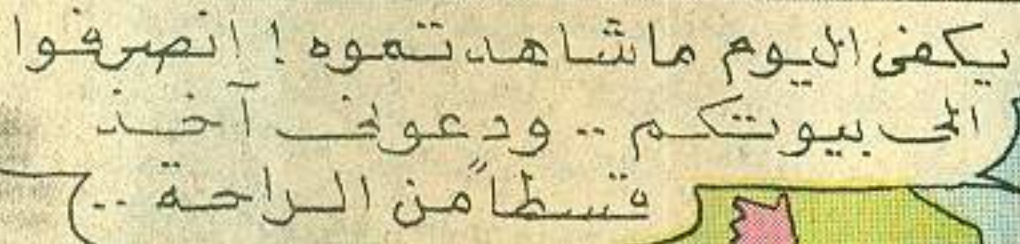 يكفى اليوم ماشاهدتموه ! انصرفوا
الى بيوتكم .. ودعونى آخذ
قسطاً من الراحة ..